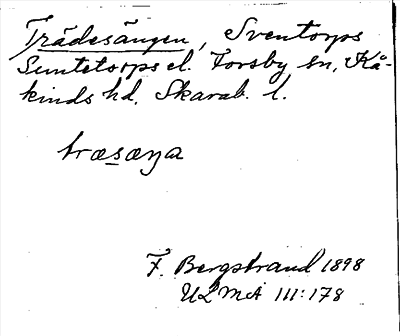 Trädesängen, Sventorps
Suntetorps el. Forsby sn, Kå-
kinds hd. Skarab. l.
træsæŋa
F. Bergstrand 1898
ULMA 111:178